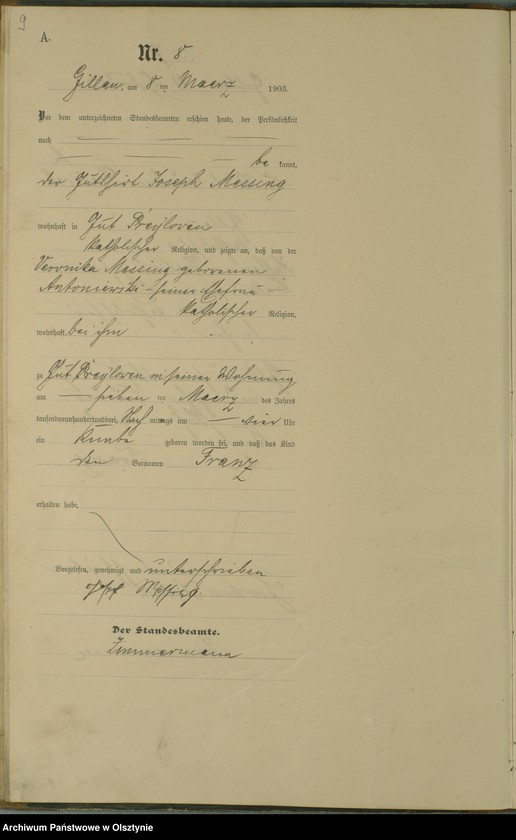 9
A.
Nr. 8
Gillau, am 8 ten Maerz 1903.
Vor dem unterzeichneten Standesbeamten erschien heute, der Persönlichkeit
nach
be kannt,
der Gutshirt Joseph Massing
wohnhaft in Gut Preylowen
katholischer Religion, und zeigte an, daß von der
Veronika Massing geborenen
Antoniewski - seiner Ehefrau
katholischer Religion,
wohnhaft bei ihm
zu Gut Preylowen in seiner Wohnung
am sieben ten Maerz des Jahres
tausendneunhundertunddrei, Nach mittags um vier Uhr
ein Knabe geboren worden sei, und daß das Kind
den Vornamen Franz
erhalten habe.
Vorgelesen, genehmigt und unterschrieben
Josef Massing
Der Standesbeamte.
Zimmermann
Archiwum Państwowe w Olsztynie